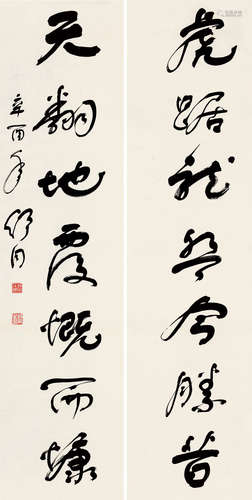 虎踞龙盘今勝昔
天翻地覆慨而慷
辛酉年 舒同